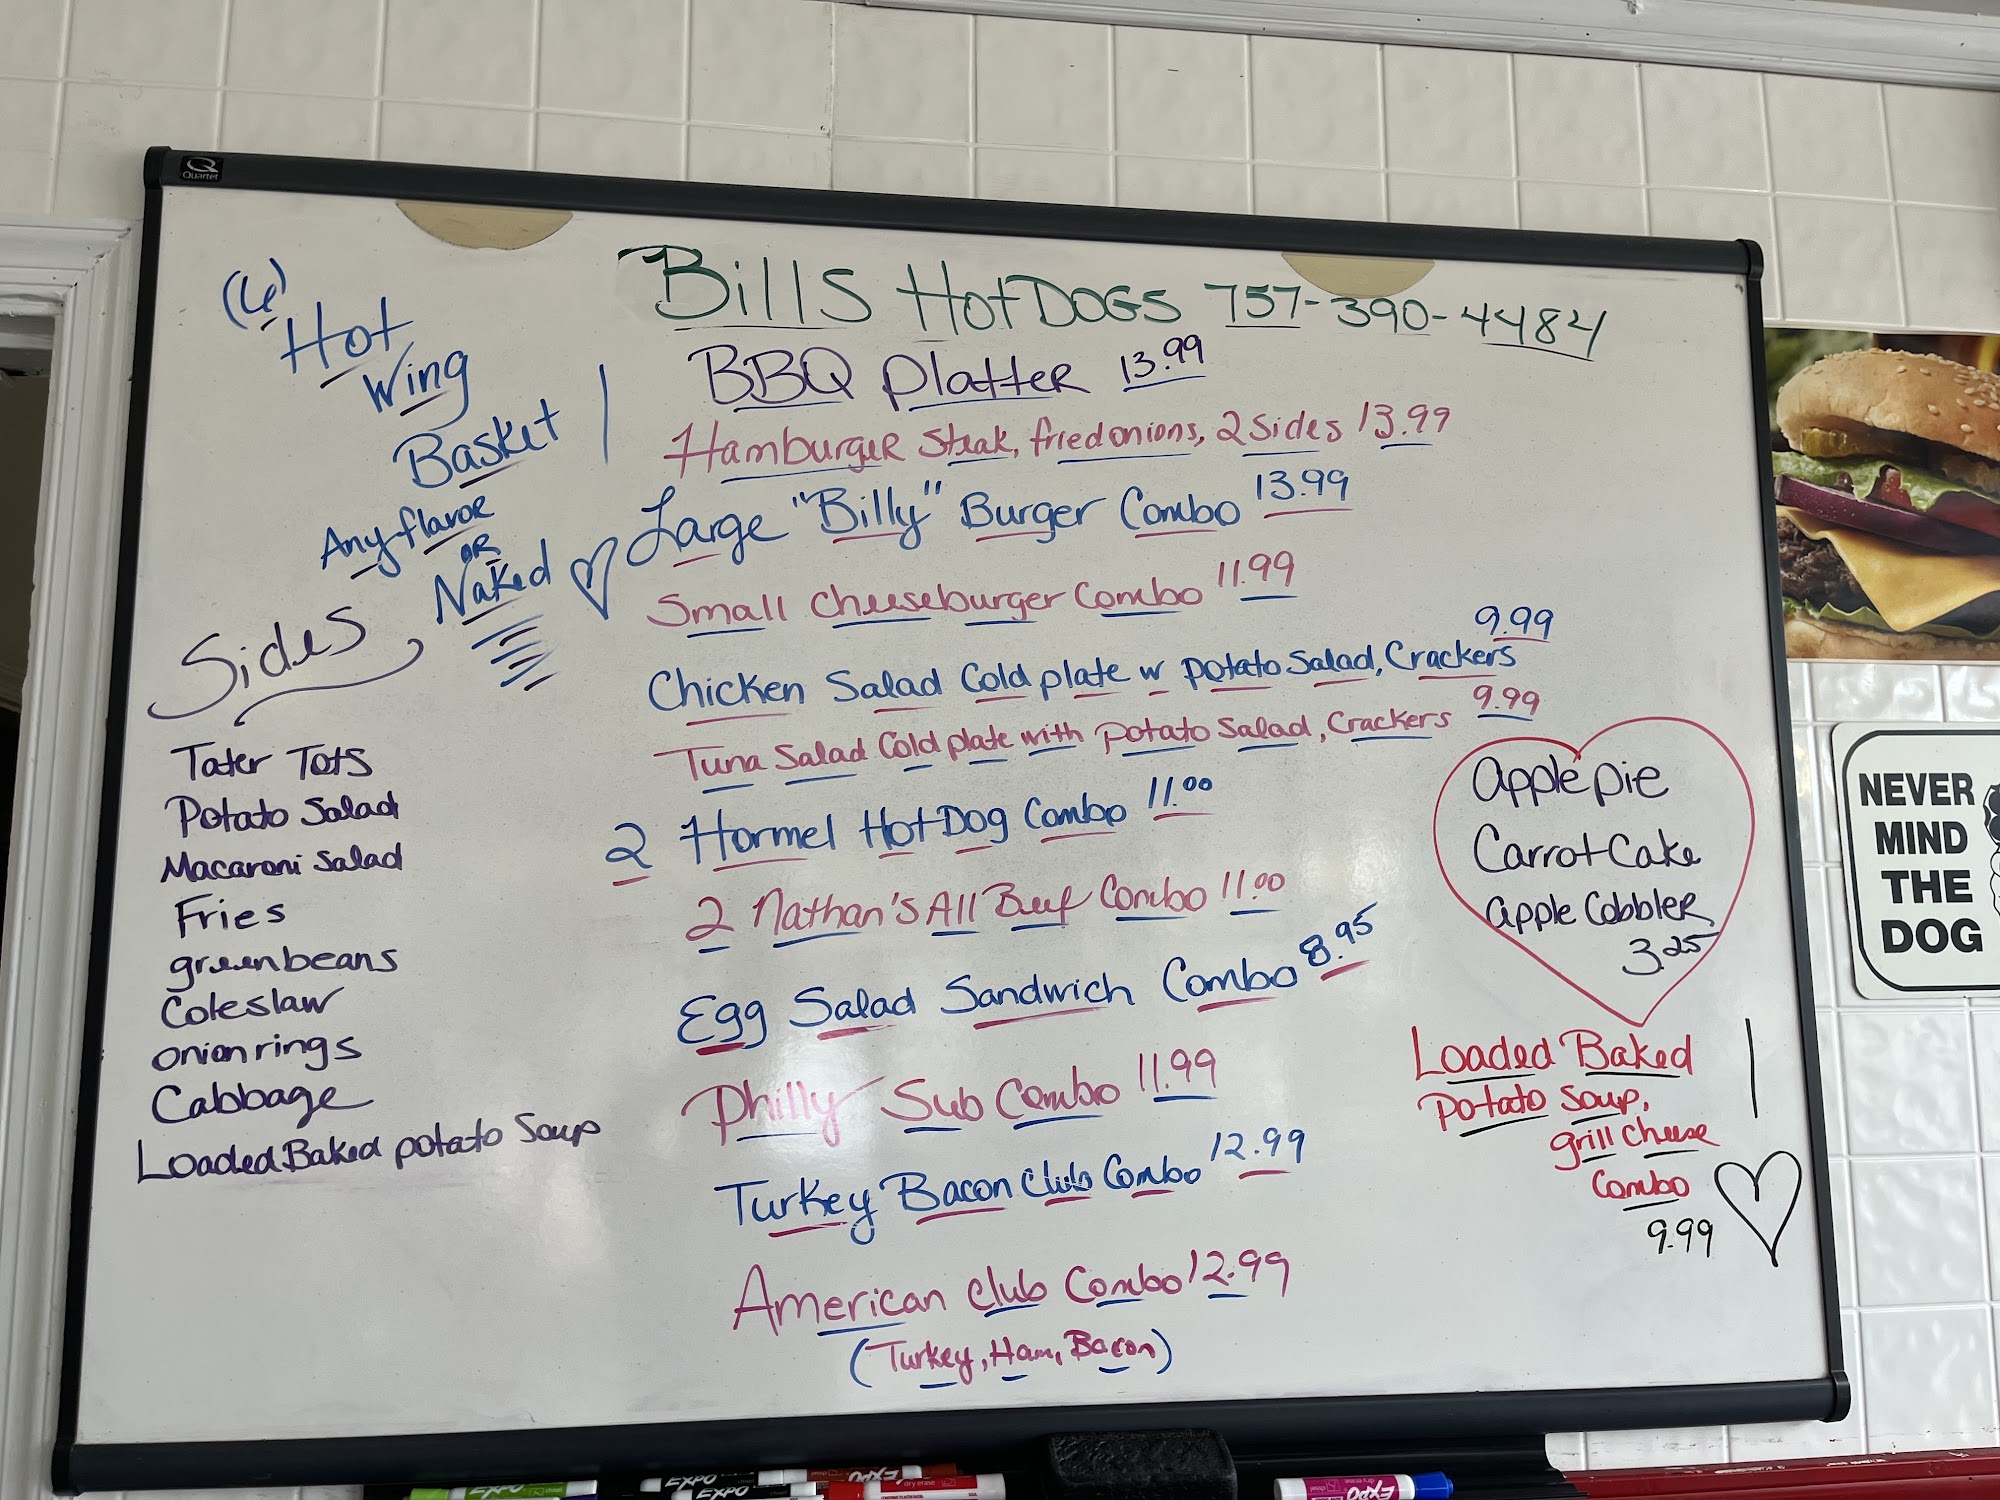 Quartet
Bills HotDOGS 757-390-4484
(6)
Hot
Wing
Basket
Any flavor
OR
Naked
BBQ Platter 13.99
Hamburger Steak, fried onions, 2 Sides 13.99
Large "Billy" Burger Combo 13.99
Small Cheeseburger Combo 11.99
Chicken Salad Cold plate w potato Salad, Crackers 9.99
Tuna Salad Cold plate with Potato Salad, Crackers 9.99
2 Hormel Hot Dog Combo 11.00
2 Nathan's All Beef Combo 11.00
Egg Salad Sandwich Combo 8.95
Philly Sub Combo 11.99
Turkey Bacon Club Combo 12.99
American Club Combo 12.99
(Turkey, Ham, Bacon)
Sides
Tater Tots
Potato Salad
Macaroni Salad
Fries
greenbeans
Coleslaw
onion rings
Cabbage
Loaded Baked potato Soup
Apple pie
Carrot Cake
Apple Cobbler
3.25
Loaded Baked
Potato Soup,
grill Cheese
Combo
9.99
NEVER
MIND
THE
DOG
EXPO
EXPO
EXPO
EXPO
dry erase
EXPO